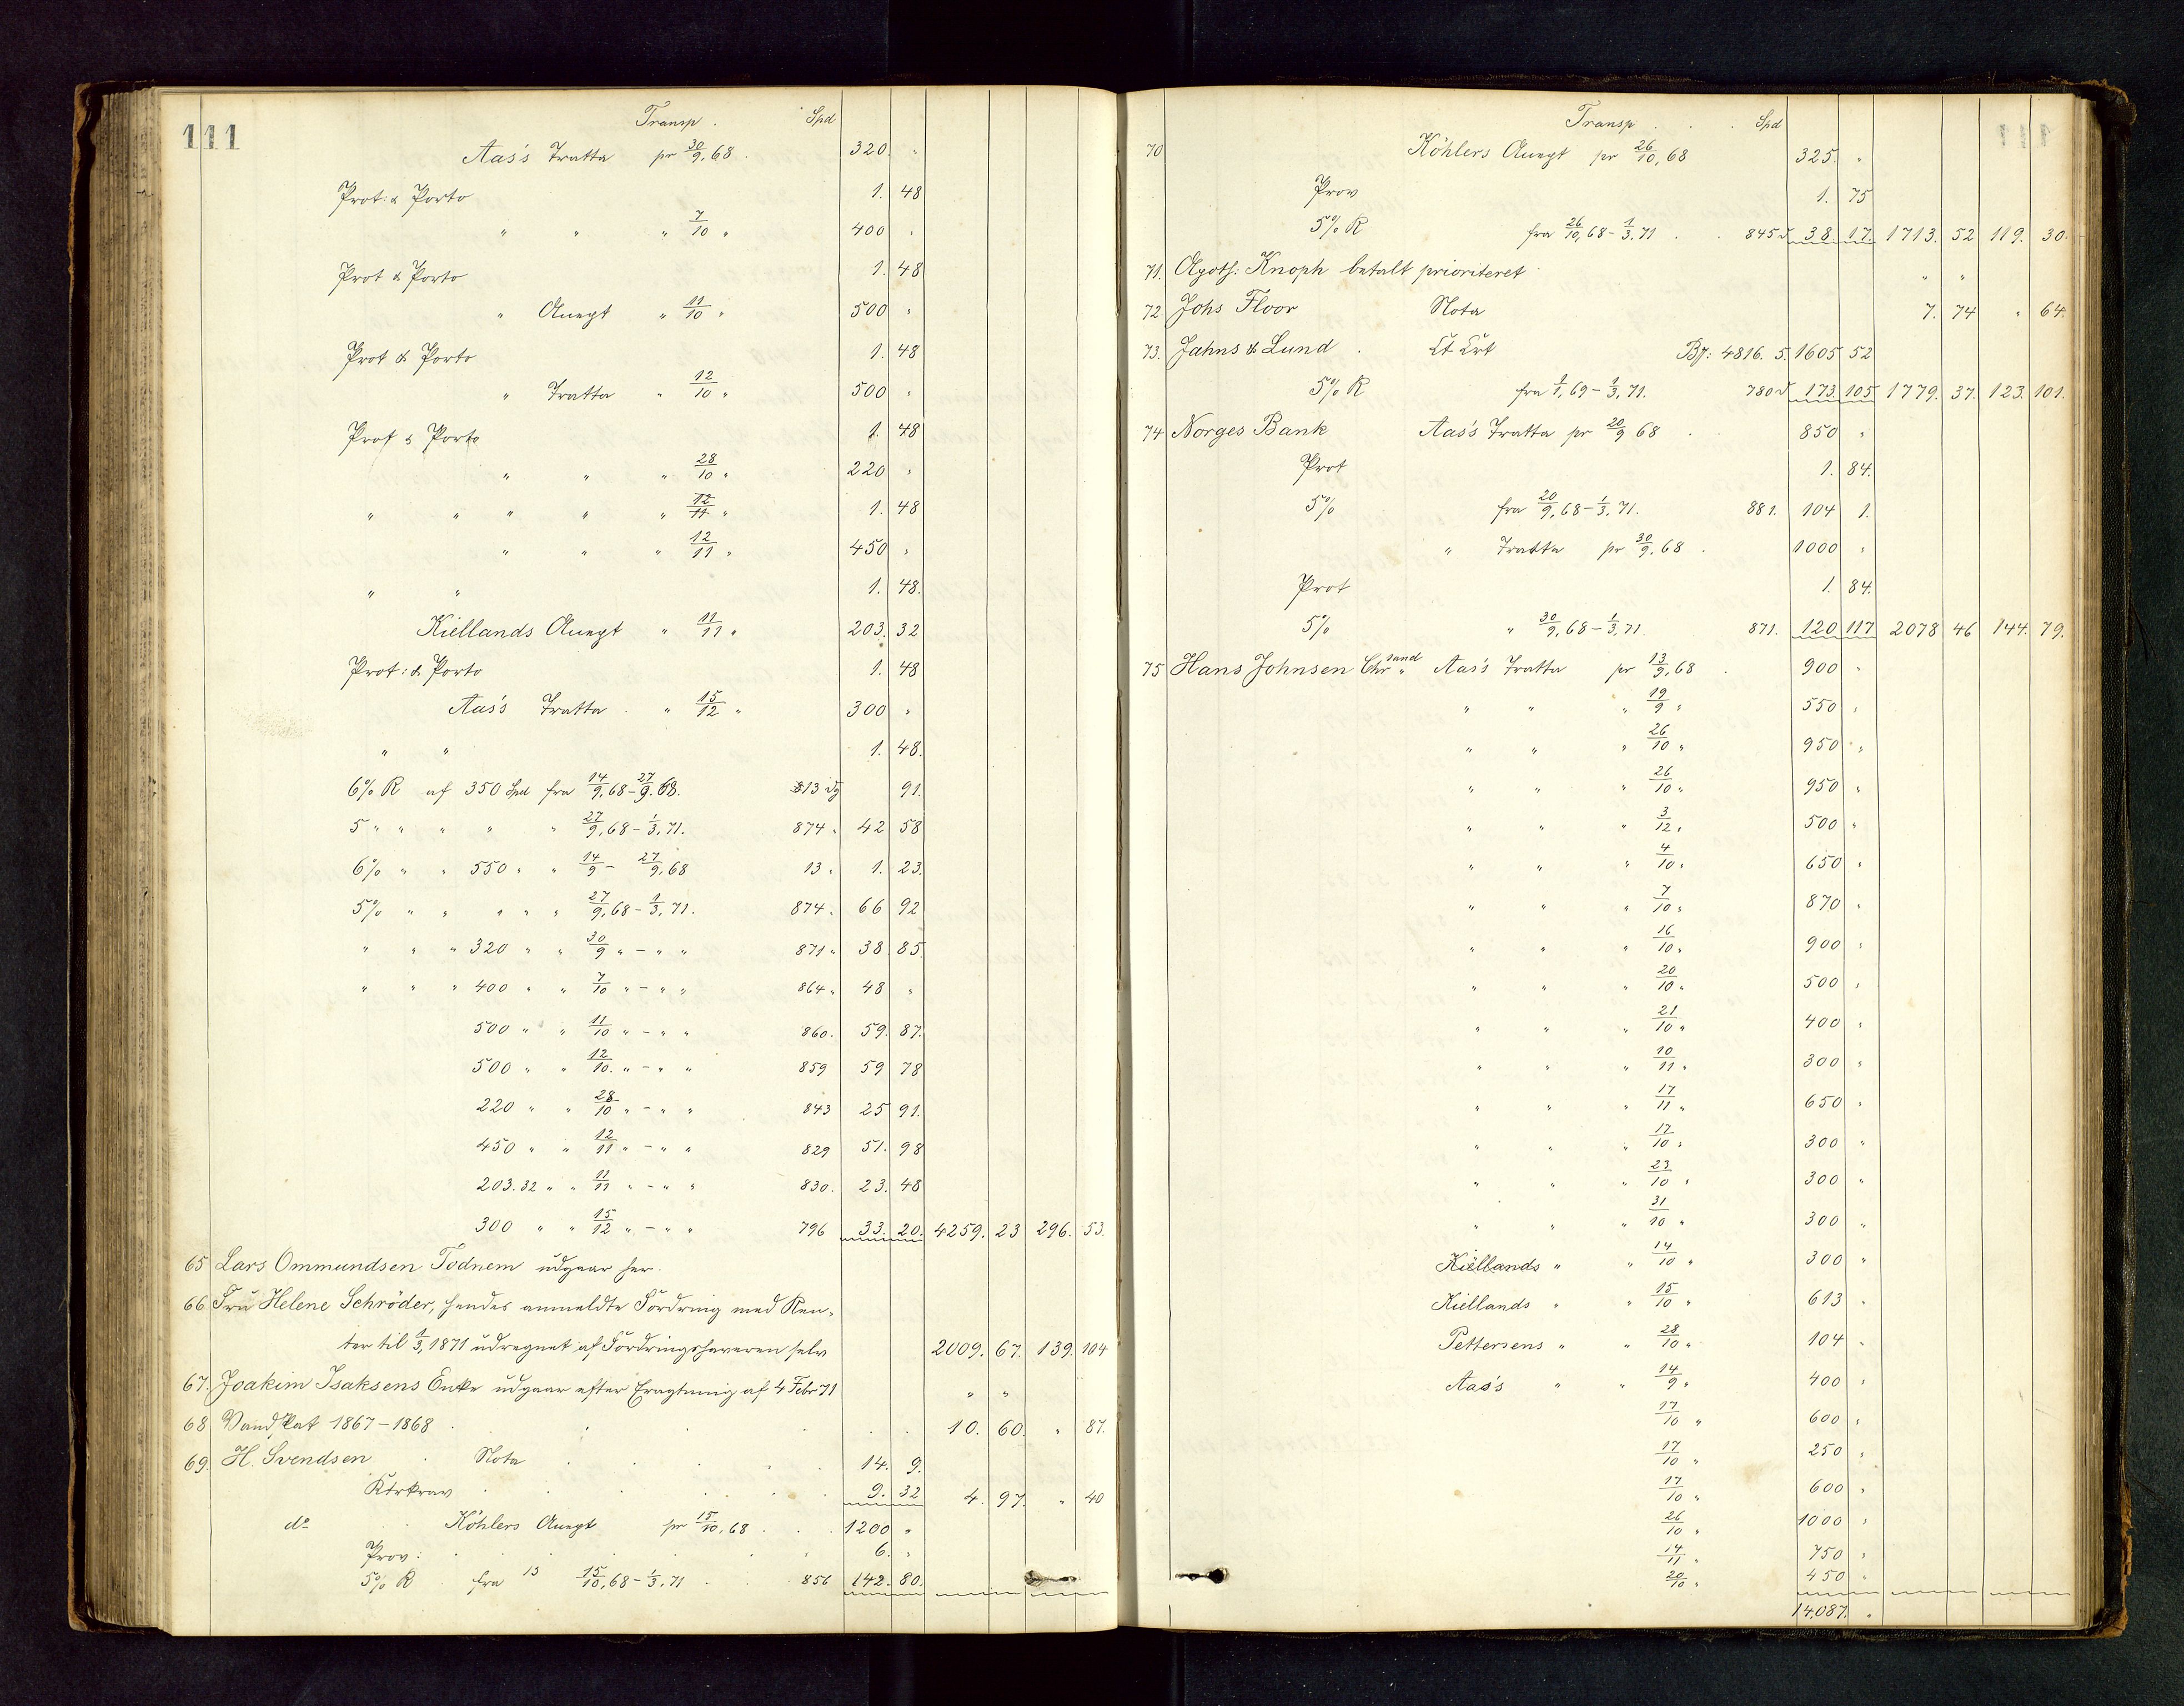 111
Transp. Spd
Aas's Tratta pr 30/9, 68. 320. "
Prot: & Porto 1. 48
" " " 7/10 " 400 "
Prot & Porto 1. 48
" Accept " 11/10 " 500 "
Prot & Porto 1. 48
" Tratta " 12/10 " 500 "
Prot & Porto 1. 48
" " " 28/10 " 220 "
" " " " " 12/11 " 1. 48
" " " 12/11 " 450 "
" " 1. 48.
Kiellands Accept " 11/11 " 203. 32
Prot: & Porto 1. 48
Aas's Tratta. " 15/12 " 300 "
" " 1. 48.
6% R af 350 Spd fra 14/9, 68 - 27/9. 68. 13 dg 91.
5 " " " " " 27/9, 68 - 1/3, 71. 874 " 42 58
6% " " 550 " " 14/9 - 27/9, 68 13 " 1. 23.
5% " " " " " 27/9, 68 - 1/3, 71. 874. 66 92
" " " 320 " " 30/9 " - " " 871 " 38 85.
" " " 400 " " 7/10 " - " " 864 " 48 "
500 " " 11/10 " - " " 860. 59. 87.
500 " " 12/10. " - " " 859 59 78
220 " " 28/10 " - " " 843 25 91.
450 " " 12/11 " - " " 829 51. 98
203.32 " " 11/11 " - " " 830. 23. 48
300 " " 15/12 " - " " 796 33. 20. 4259. 23 296. 53.
65 Lars Ommundsen Todnem udgaar her.
66 Fru Helene Schröder, hendes anmeldte Fordring med Ren-
ter til 1/3, 1871 udregnet af Fordringshaveren selv 2009. 67. 139. 104
67. Joakim Isaksens Enke udgaar efter Eragtning af 4 Febr 71 " "
68 Vandskat 1867 - 1868 . . . . 10. 60. " 87.
69. H. Svendsen Nota 14. 9.
9. 32 4. 97. " 40
do Köhlers Accept pr 15/10, 68 . . . 1200 "
Prov: 6. "
5% R fra 15/10, 68 - 1/3, 71 . . 856 142. 80.
Transp . . . Spd
70 Köhlers Accept pr 26/10, 68 325. "
Prov 1. 75
5% R fra 26/10, 68 - 1/3. 71 . . 845 d 38 17. 1713. 52 119. 30.
71. Apoth: Knoph betalt prioriteret " "
72 Johs Floor Nota 7. 74 " 64.
73. Jahns & Lund . Ct Crt 4816. 5. 1605 52
5% R fra 1/1, 69 - 1/3, 71. 780 d 173. 105 1779. 37. 123. 101.
74 Norges Bank Aas's Tratta pr 20/9 68 . 850 "
Prot 1. 84.
5% fra 20/9, 68 - 1/3, 71. 881. 104 1.
" Tratta pr 30/9, 68 . 1000 "
Prot 1. 84.
5% " 30/9, 68 - 1/3, 71. 871. 120 117 2078 46 144. 79.
75 Hans Johnsen Chrsand Aas's Tratta pr 13/9, 68 . 900 "
" " " 19/9 " 550 "
" " " 26/10 " 950 "
" " " 26/10 " 950 "
" " " 3/12 " 500 "
" " " 4/10 " 650 "
" " " 7/10 " 870 "
" " " 16/10 " 900 "
" " " 20/10 " 500 "
" " " 21/10 " 400 "
" " " 10/11 " 300 "
" " " 17/11 " 650 "
" " " 17/10 " 300 "
" " " 23/10 " 300 "
" " " 31/10 " 300 "
Kiellands " " 14/10 " 300 "
Kiellands " " 15/10 " 613 "
Pettersens " " 28/10 " 104 "
Aas's " " 14/9 " 400 "
17/10 " 600 "
17/10 " 250 "
17/10 " 600 "
26/10 " 1000 "
14/11 " 750 "
20/10 " 450 "
14.087. "